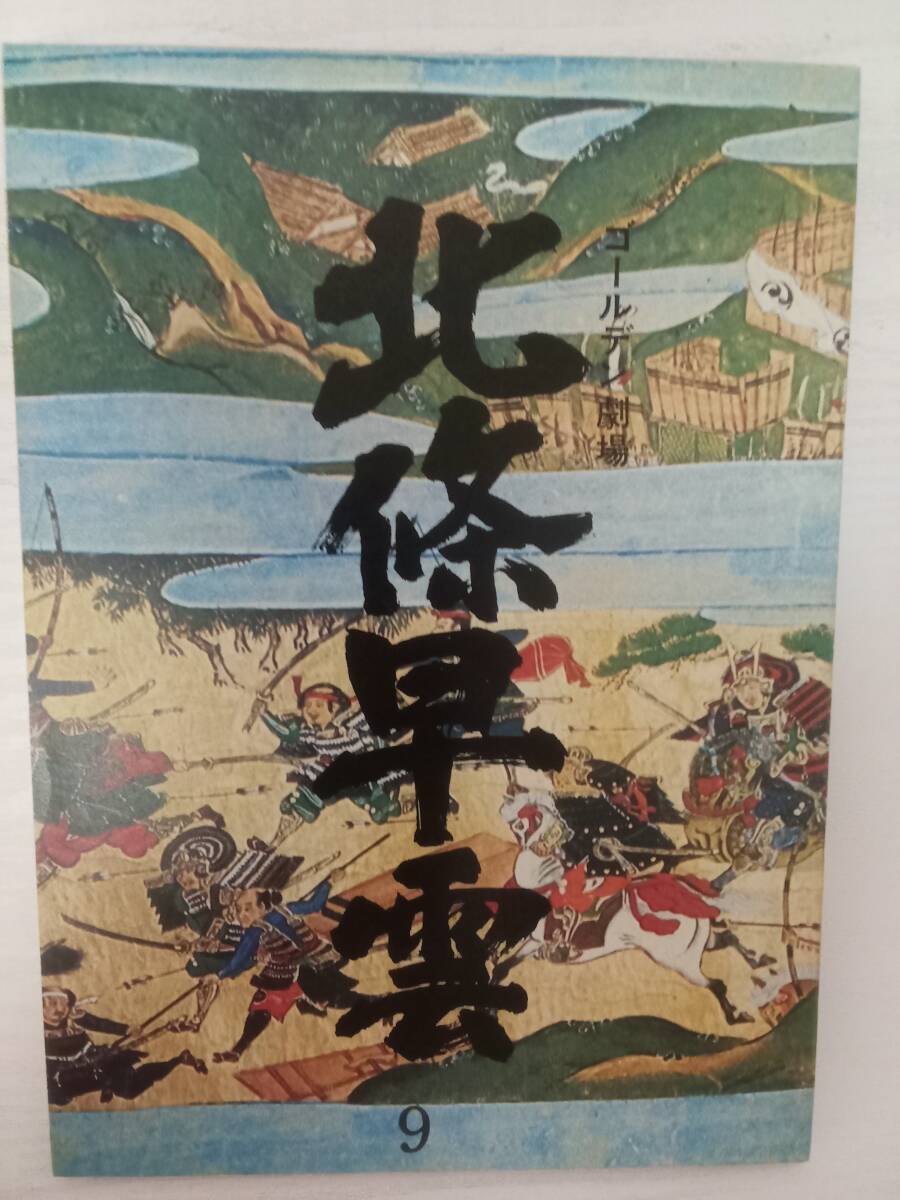 ゴールデン劇場
北條早雲
9